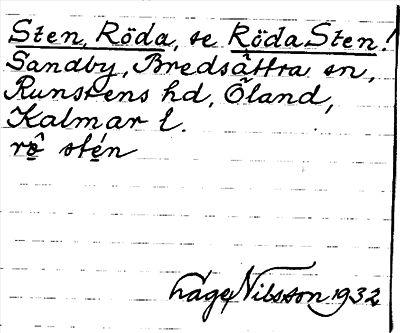 Sten, Röda, se Röda Sten!
Sandby, Bredsättra sn,
Runstens hd, Öland,
Kalmar l.
rö̂ stén
Lage Nilsson 1932